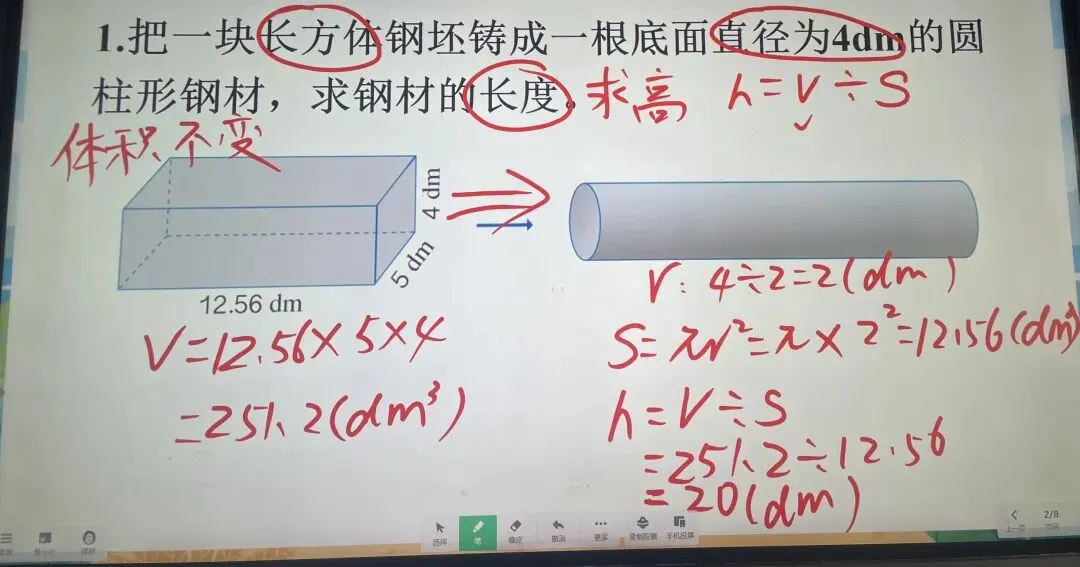 1.把一块长方体钢坯铸成一根底面直径为4dm的圆
柱形钢材，求钢材的长度。求高 h=V÷S
体积不变
4 dm
5 dm
12.56 dm
V=12.56×5×4
=251.2(dm³)
r:4÷2=2(dm)
S=πr²=π×2²=12.56(dm³)
h=V÷S
=251.2÷12.56
=20(dm)
选择
笔
橡皮
撤消
更多
手机投屏
2/8